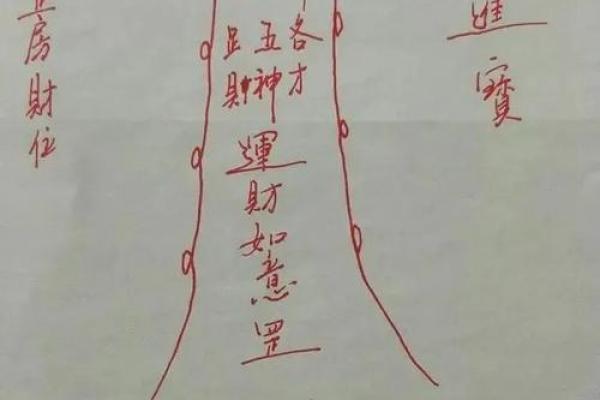 進寶
各才
五神
財
運財如意罡
房財位